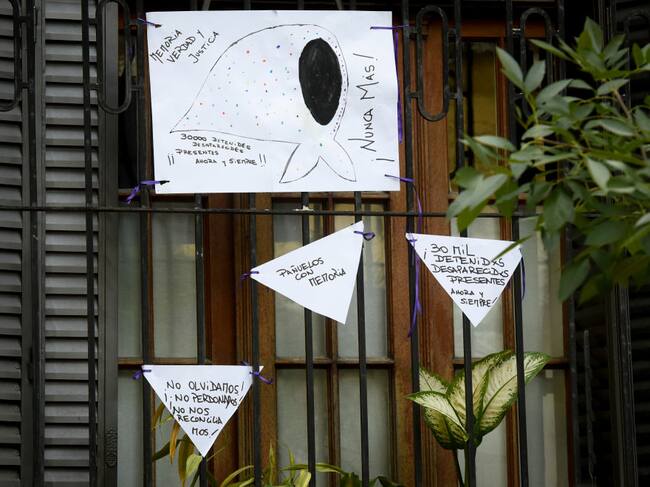 MEMORIA
VERDAD Y
JUSTICIA
30000 DETENIDES
DESAPARECIDES
PRESENTES
¡¡ AHORA Y SIEMPRE !!
¡ NUNCA MÁS !
PAÑUELOS
CON
MEMORIA
¡ 30 MIL
DETENIDXS
DESAPARECIDXS
PRESENTES
AHORA Y
SIEMPRE!
¡NO OLVIDAMOS!
¡NO PERDONAMOS
¡NO NOS
RECONCILIA
MOS!